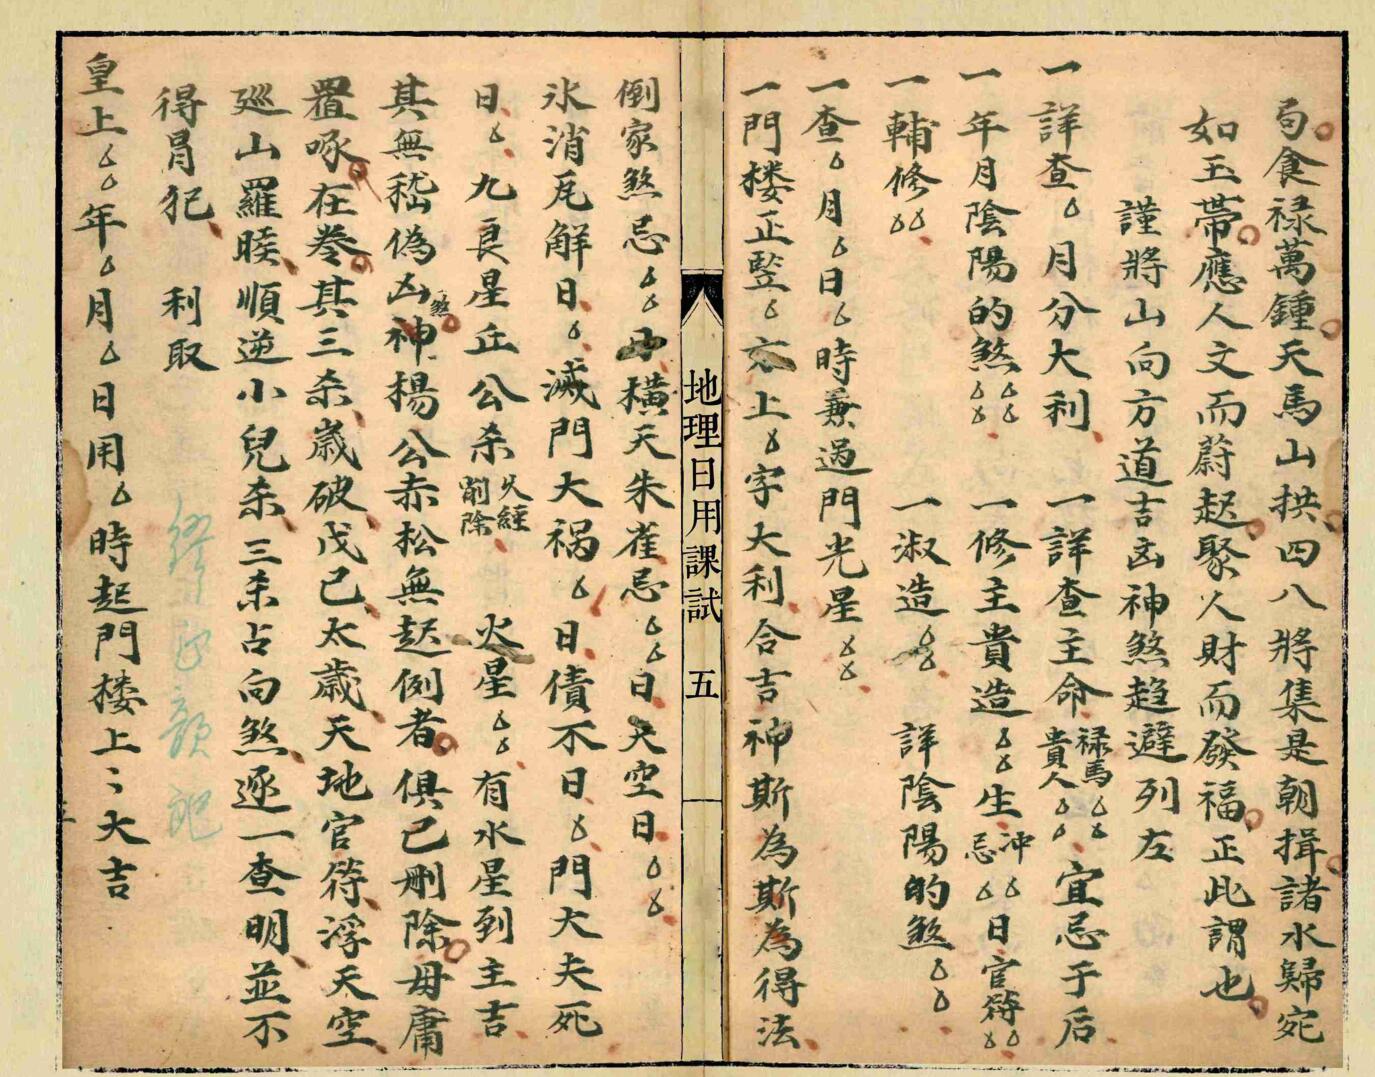 局食禄萬鍾天馬山拱四八將集是朝揖諸水歸宛
如玉帶應人文而蔚起聚人財而發福正此謂也
謹將山向方道吉凶神煞趋避列左
一詳查厶月分大利 一詳查主命禄馬厶厶貴人厶厶宜忌于后
一年月陰陽的煞厶厶厶厶 一修主貴造厶厶生冲厶忌厶日官符厶厶
一輔修厶厶 一淑造厶厶 詳陰陽的煞厶厶
一查厶月厶日厶時兼過門光星厶厶
一門楼正竪厶六上厶字大利合吉神斯為斯為得法
地理日用課試 五
倒家煞忌厶厶丹橫天朱雀忌厶厶日天空日厶厶
氷消瓦解日厶滅門大祸厶日債不日厶門大夫死
日厶九良星丘公杀欠經削除 火星厶厶有水星到主吉
其無嵇偽凶神煞楊公赤松無起例者俱已刪除毋庸
置啄在卷其三杀歲破戊己太歲天地官符浮天空
廵山羅睺順逆小兒杀三杀占向煞逐一查明並不
得冐犯 利取
皇上厶厶年厶月厶日用厶時起門楼上上大吉